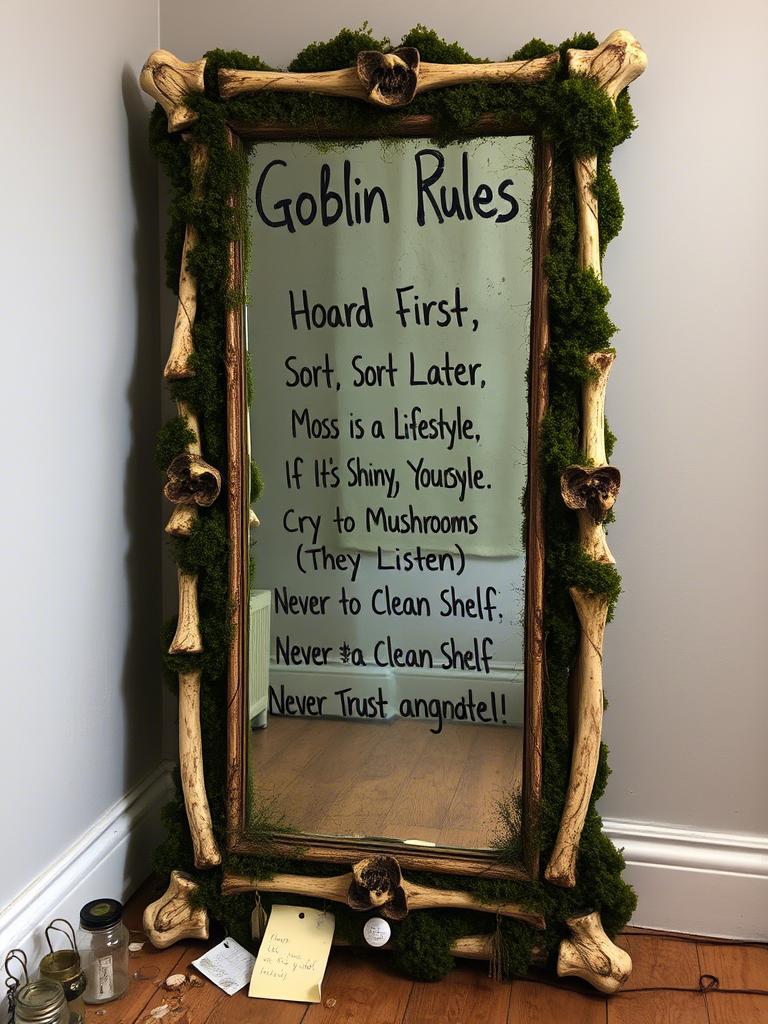 Goblin Rules
Hoard First,
Sort, Sort Later,
Moss is a Lifestyle,
If It's Shiny, Yousyle.
Cry to Mushrooms
(They Listen)
Never to Clean Shelf.
Never a Clean Shelf
Never Trust angndtel!